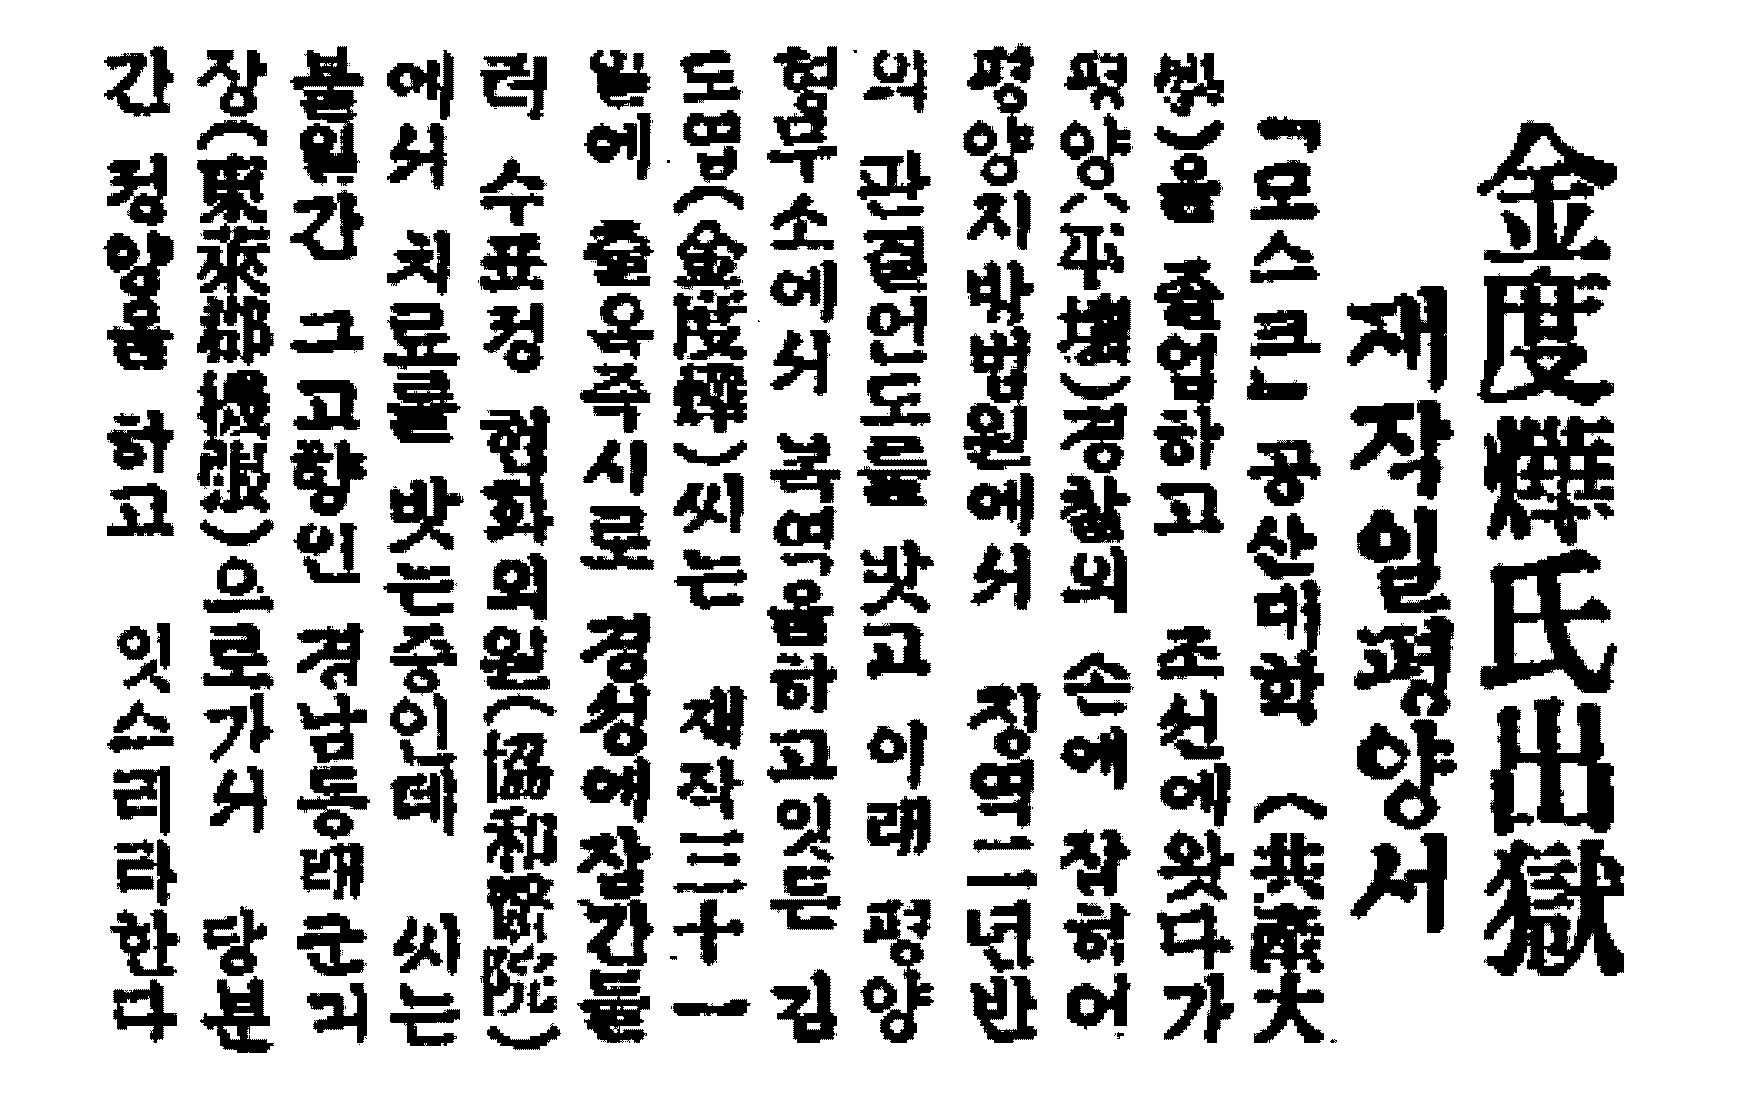 金度燁氏出獄
재작일평양서
「모스크」 공산대학 (共產大
學)을 졸업하고 조선에왓다가
평양(平壤)경찰의 손에 잡히어
평양지방법원에서 징역三년반
의 판결언도를 밧고 이래 평양
형무소에서 복역을하고잇든 김
도엽(金度燁)씨는 재작三十一
일에 출옥즉시로 경성에잠간들
러 수표정 협화의원(協和醫院)
에서 치료를 밧는중인데 씨는
불일간 그고향인 경남동래군긔
장(東萊郡機張)으로가서 당분
간 정양을 하고 잇스리라한다